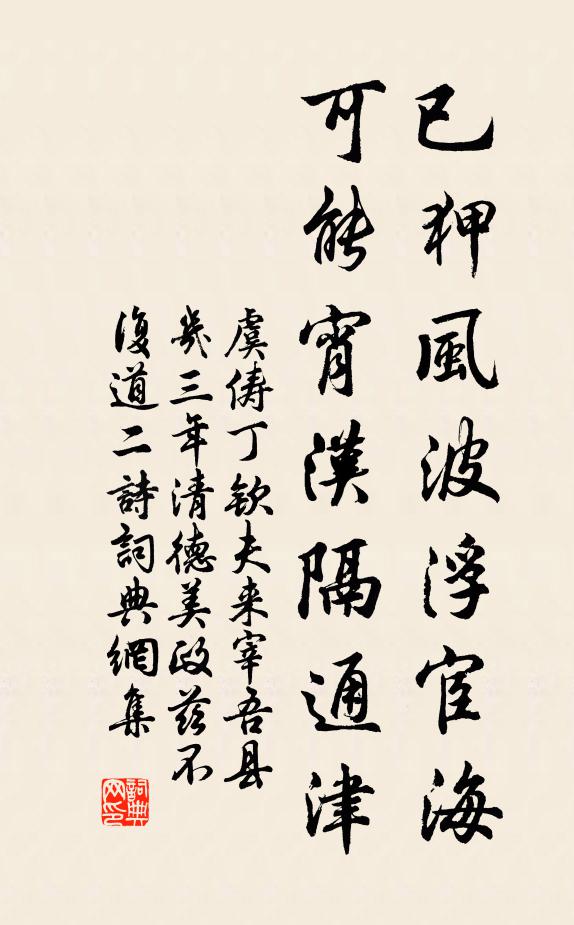 已狎風波浮宦海
可能霄漢隔通津
虞俦丁钦夫来宰吾县
幾三年清德美政兹不
復道二詩詞典網集
詞典網印